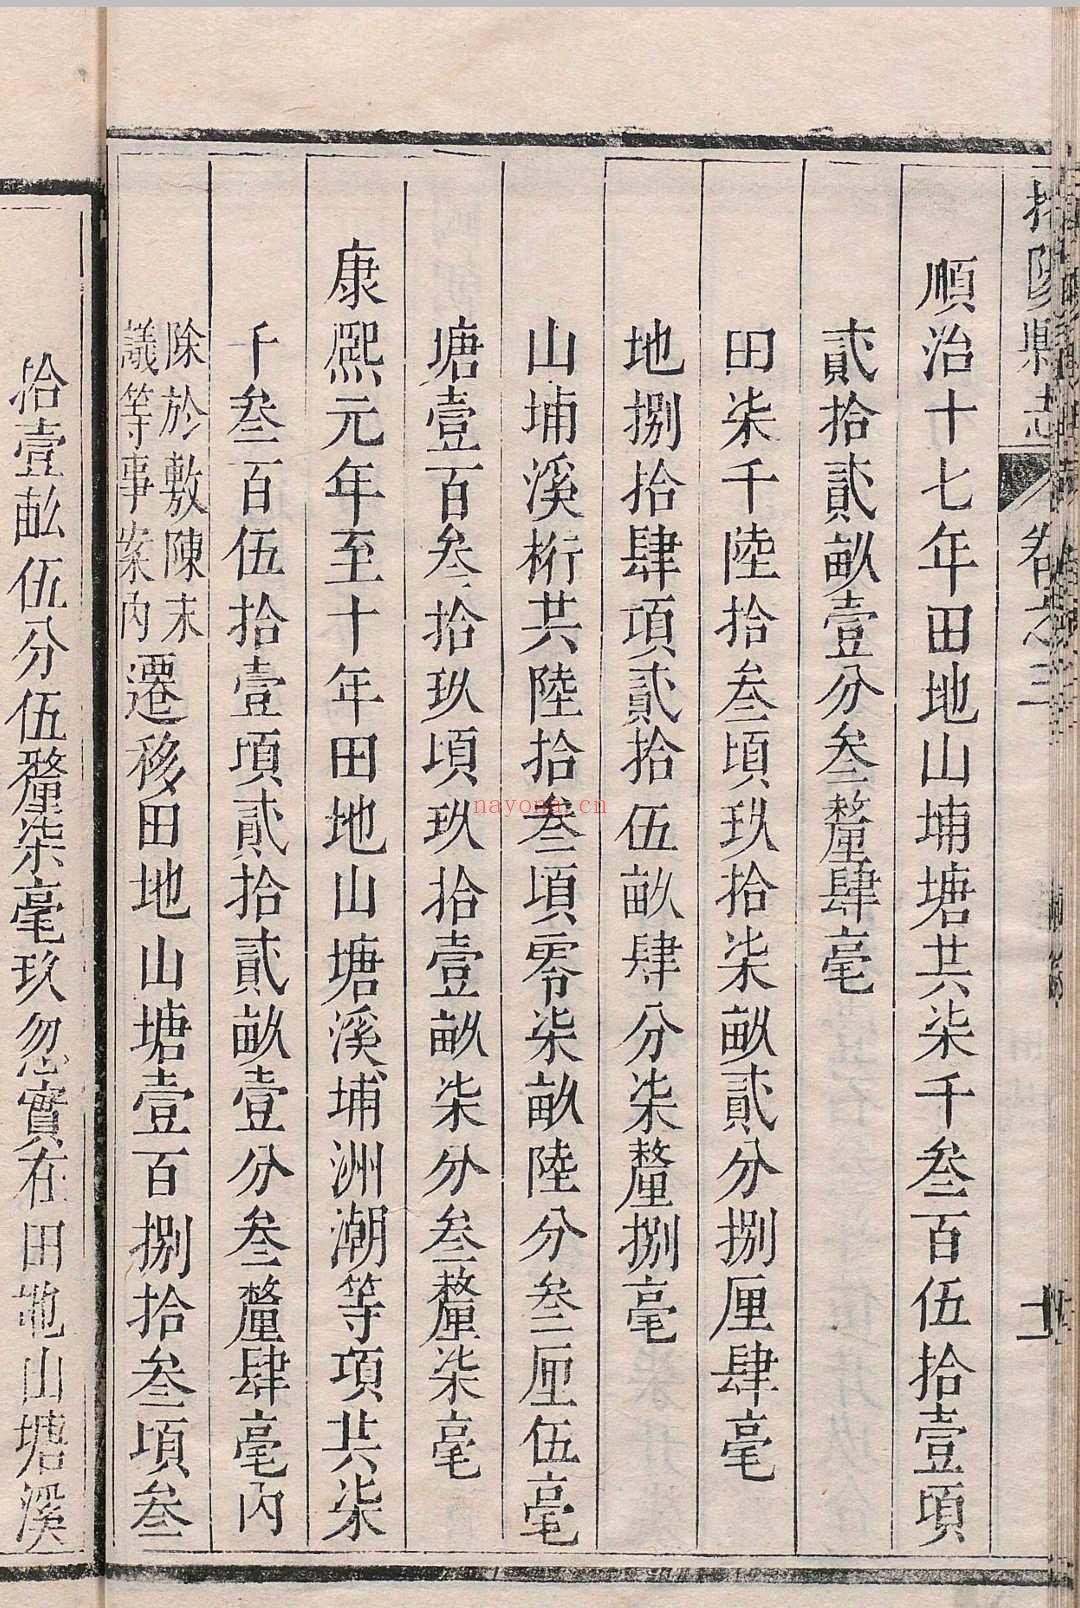 揭陽縣志 卷之三
順治十七年田地山埔塘共柒千叁百伍拾壹頃
貳拾貳畝壹分叁釐肆毫
田柒千陸拾叁頃玖拾柒畝貳分捌厘肆毫
地捌拾肆項貳拾伍畝肆分柒釐捌毫
山埔溪桁共陸拾叁頃零柒畝陸分叁厘伍毫
塘壹百叁拾玖頃玖拾壹畝柒分叁釐柒毫
康熙元年至十年田地山塘溪埔洲潮等項共柒
千叁百伍拾壹項貳拾貳畝壹分叁釐肆毫內
除於敷陳末
議等事案內
遷移田地山塘壹百捌拾叁項叁
拾壹畝伍分伍釐柒毫玖忽實在田地山塘溪
nayona.cn